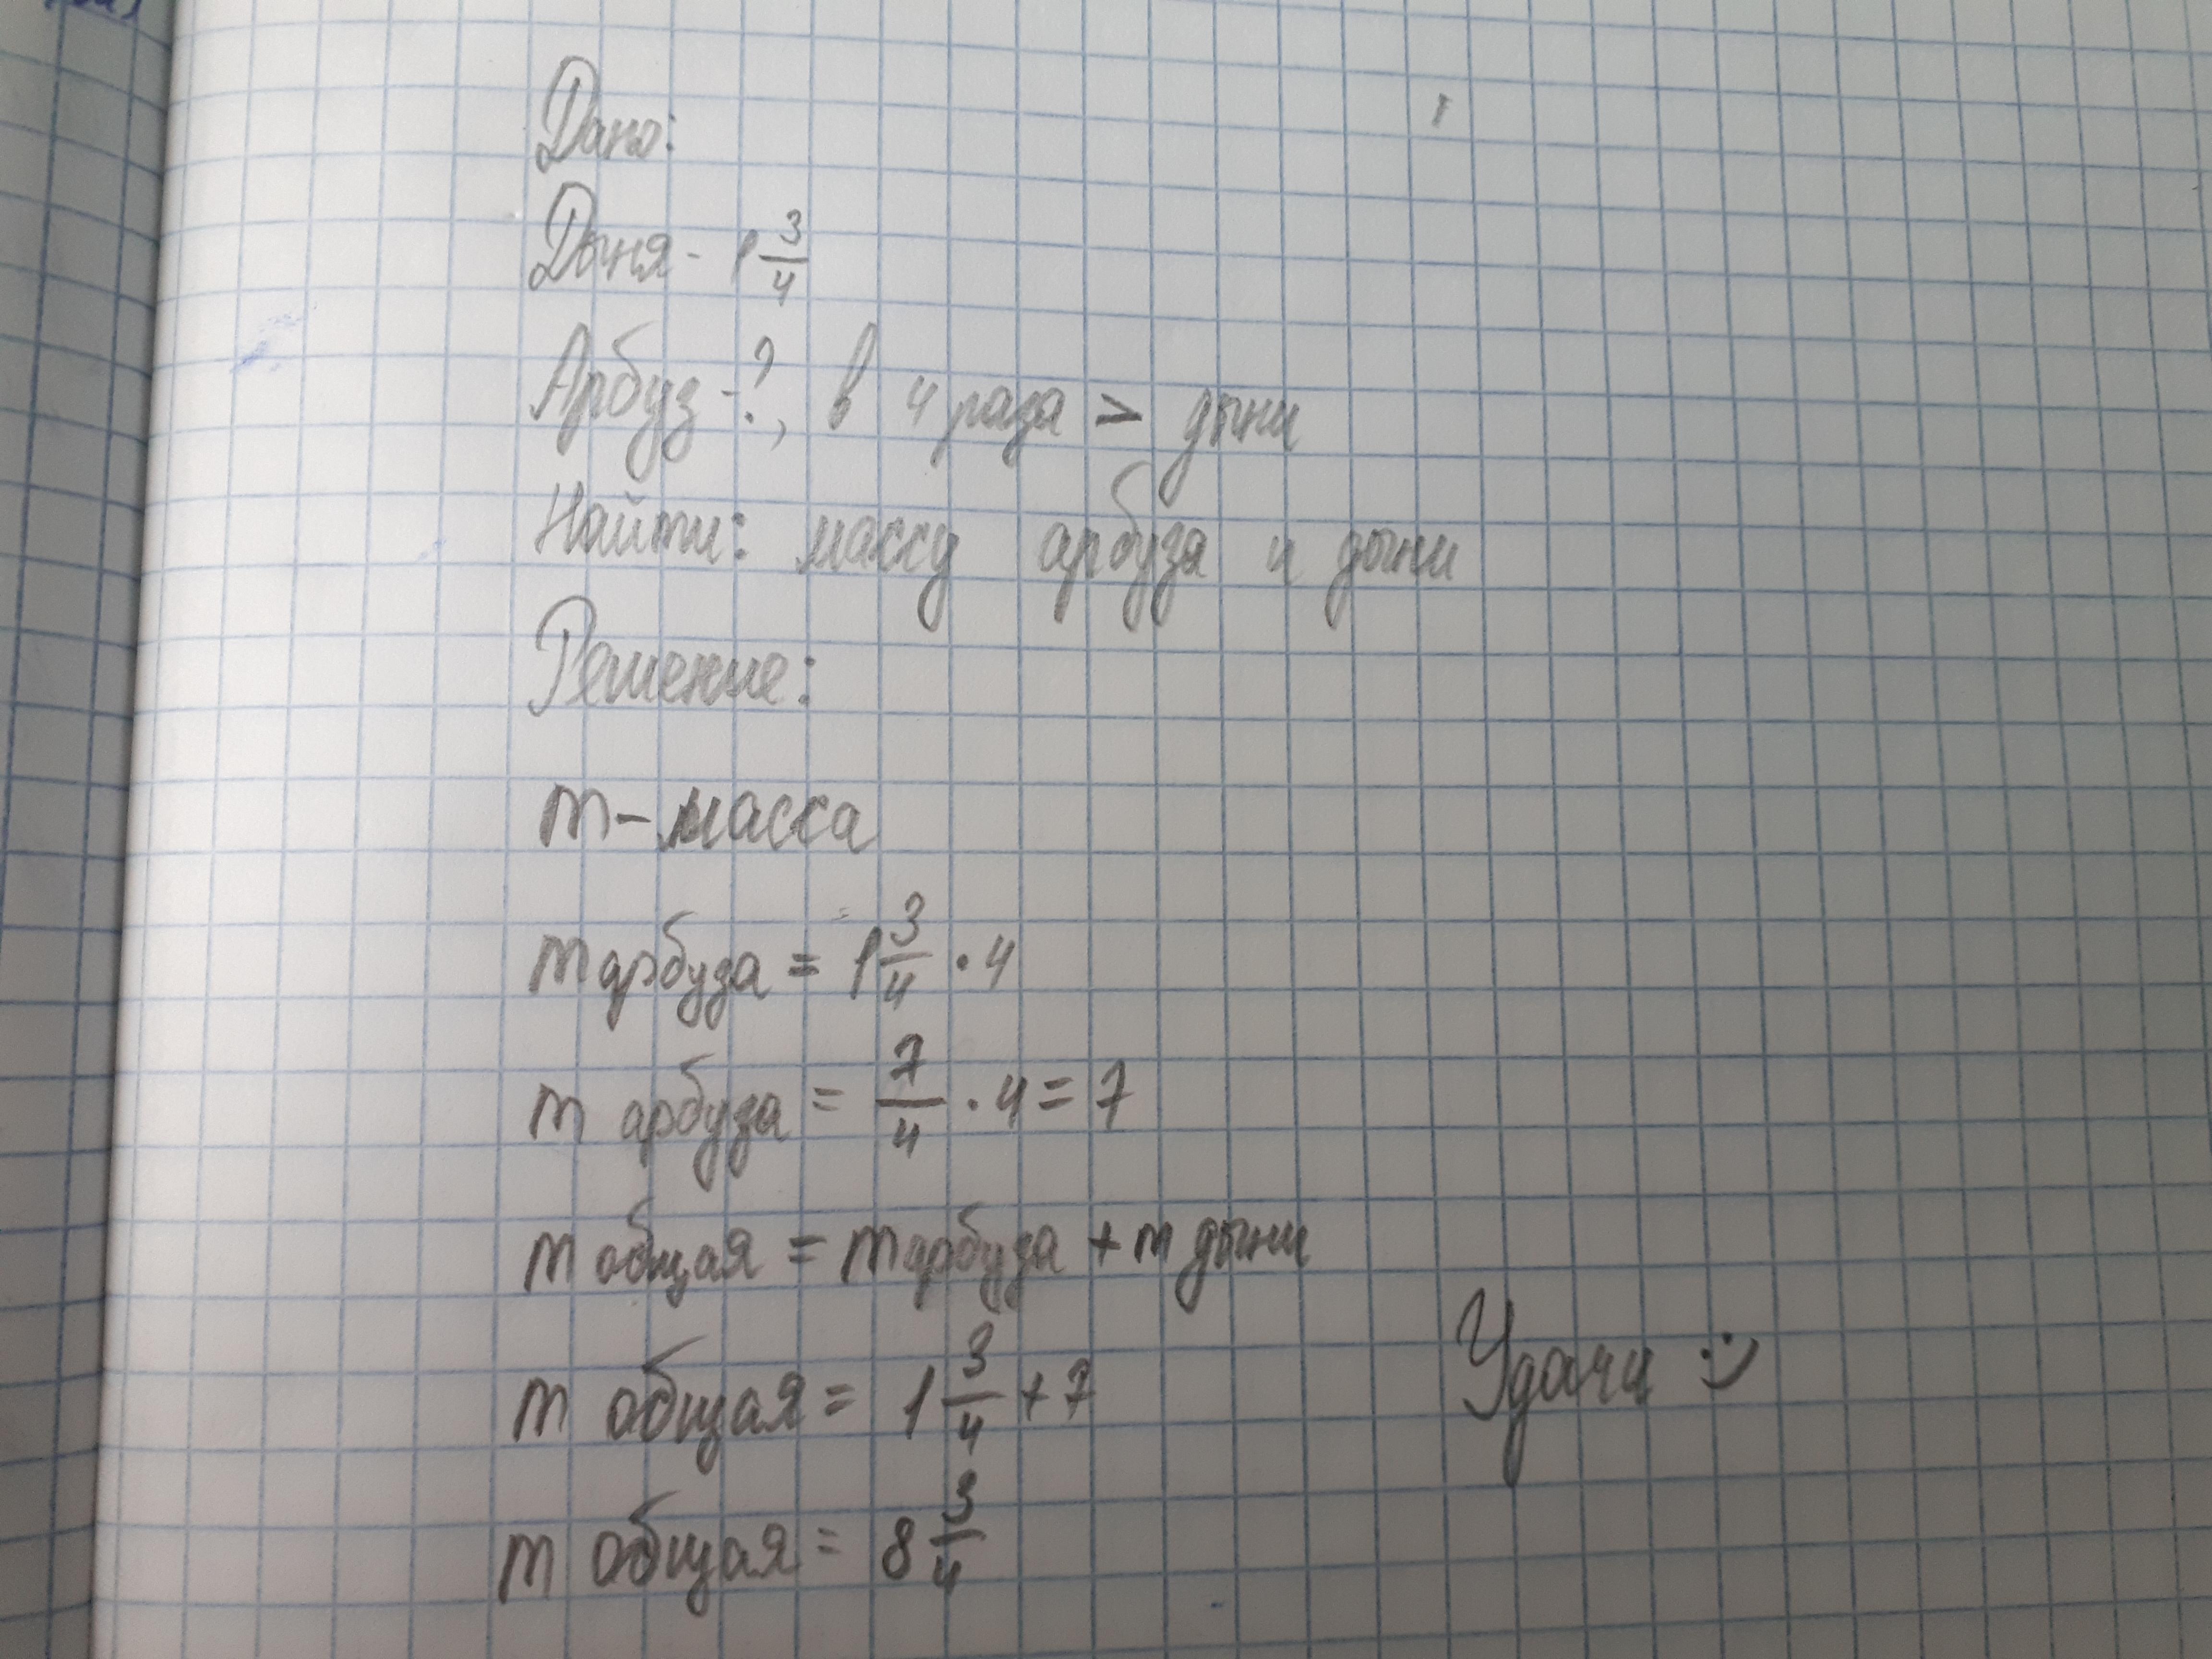 Дано:
Дыня - 1 3/4
Арбуз - ?, в 4 раза > дыни
Найти: массу арбуза и дыни
Решение:
m - масса
m арбуза = 1 3/4 · 4
m арбуза = 7/4 · 4 = 7
m общая = m арбуза + m дыни
m общая = 1 3/4 + 7
Удачи :)
m общая = 8 3/4